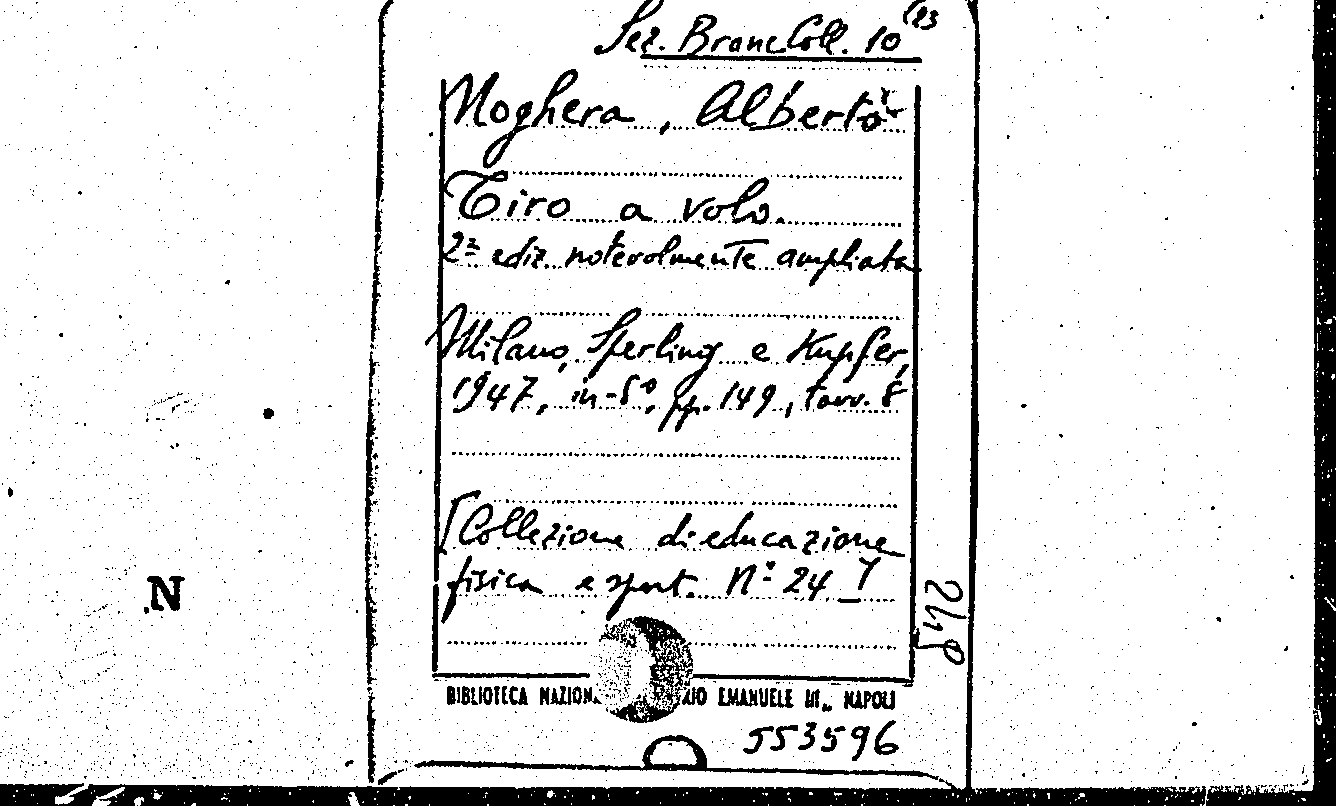 Sez. Branc. Coll. 10
Noghera, Alberto
Tiro a volo.
2ª ediz. notevolmente ampliata
Milano, Sperling e Kupfer,
1947, in-8°, pp. 149, tavv. 8
[Collezione di educazione
fisica e sport. N° 24]
N
BIBLIOTECA EMANUELE III„ NAPOLI
553596